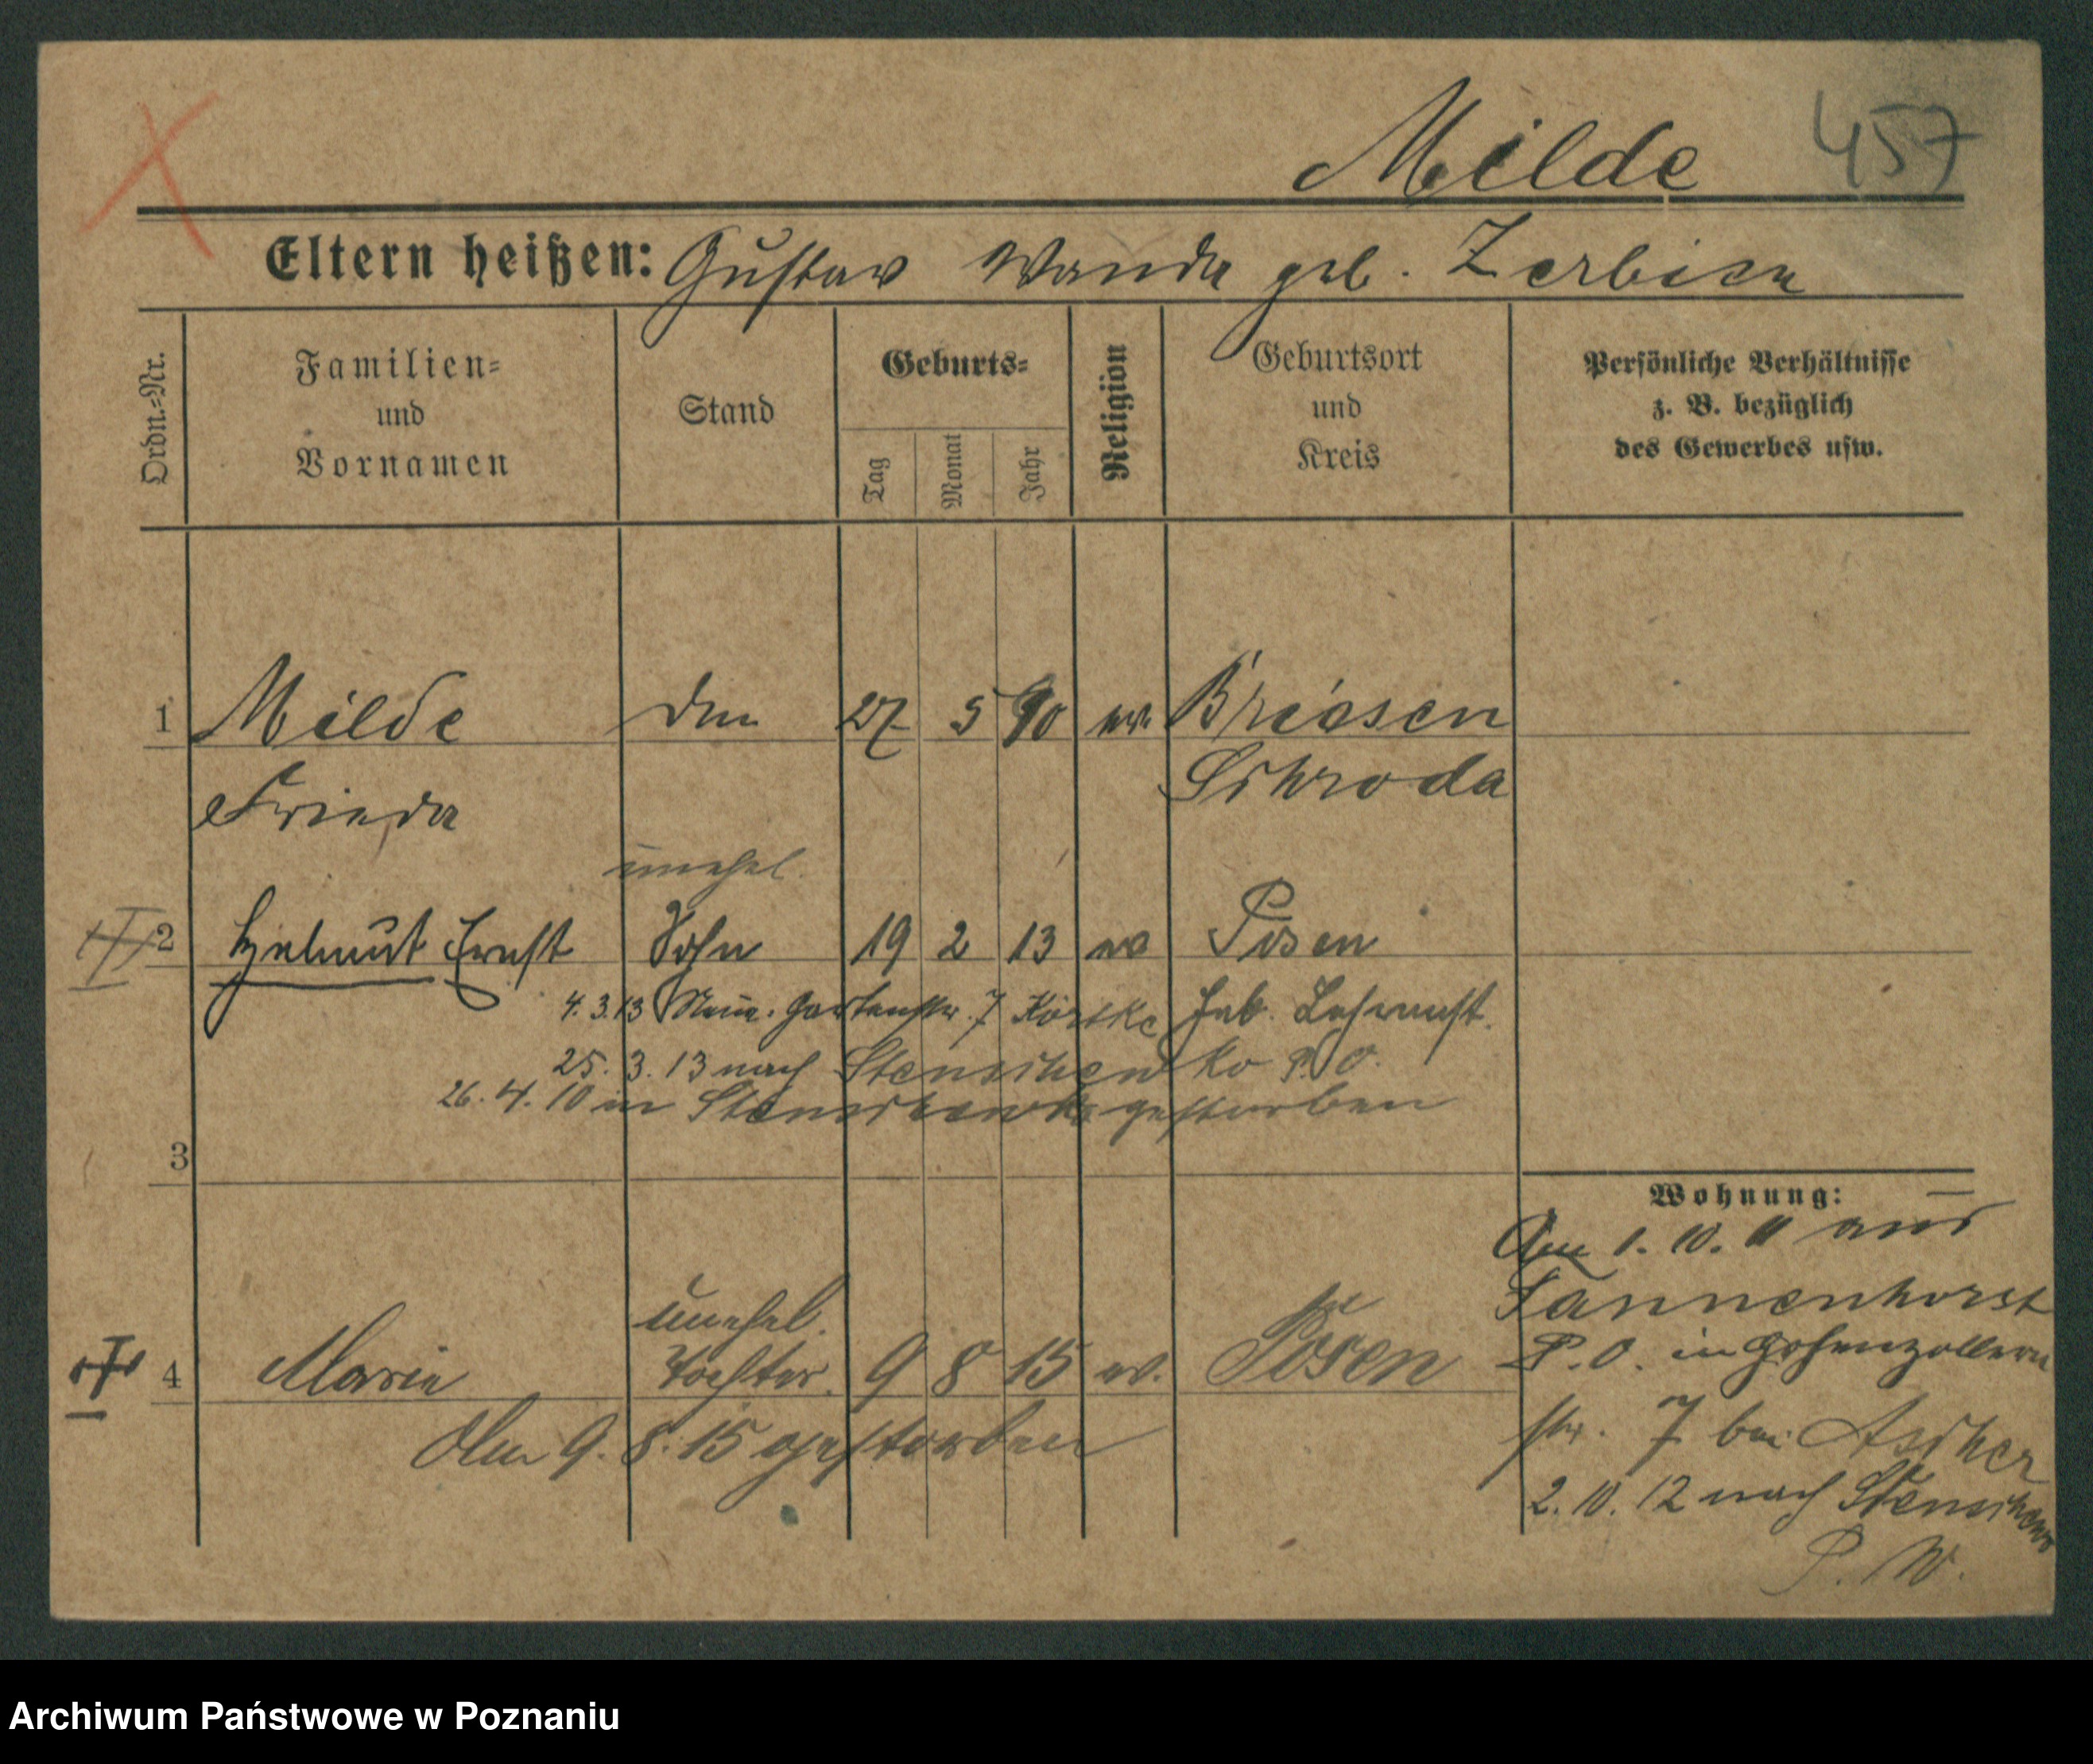 Milde 457
Eltern heißen: Gustav Wanda geb. Zerbien
Ordn.=Nr.
Familien=
und
Vornamen
Stand
Geburts=
Tag
Monat
Jahr
Religion
Geburtsort
und
Kreis
Persönliche Verhältnisse
z. B. bezüglich
des Gewerbes usw.
1 Milde 27 5 90 ev. Briesen
Frieda Schroda
unehel.
2 Helmut Ernst Sohn 19 2 13 ev Posen
4.3.13 Neue Gartenstr. 7
25. 3. 13 nach Stenschewko P. O.
26. 4. in Stenschewko gestorben
3
unehel.
4 Marie Tochter. 9 8 15 ev. Posen
den 9. 8. 15 gestorben
Wohnung:
Am 1. 10. 11 aus
Tannenhorst
P. O. in Hohenzollern
str. 7 bei Ascher
2. 10. 12 nach
P. W.
Archiwum Państwowe w Poznaniu